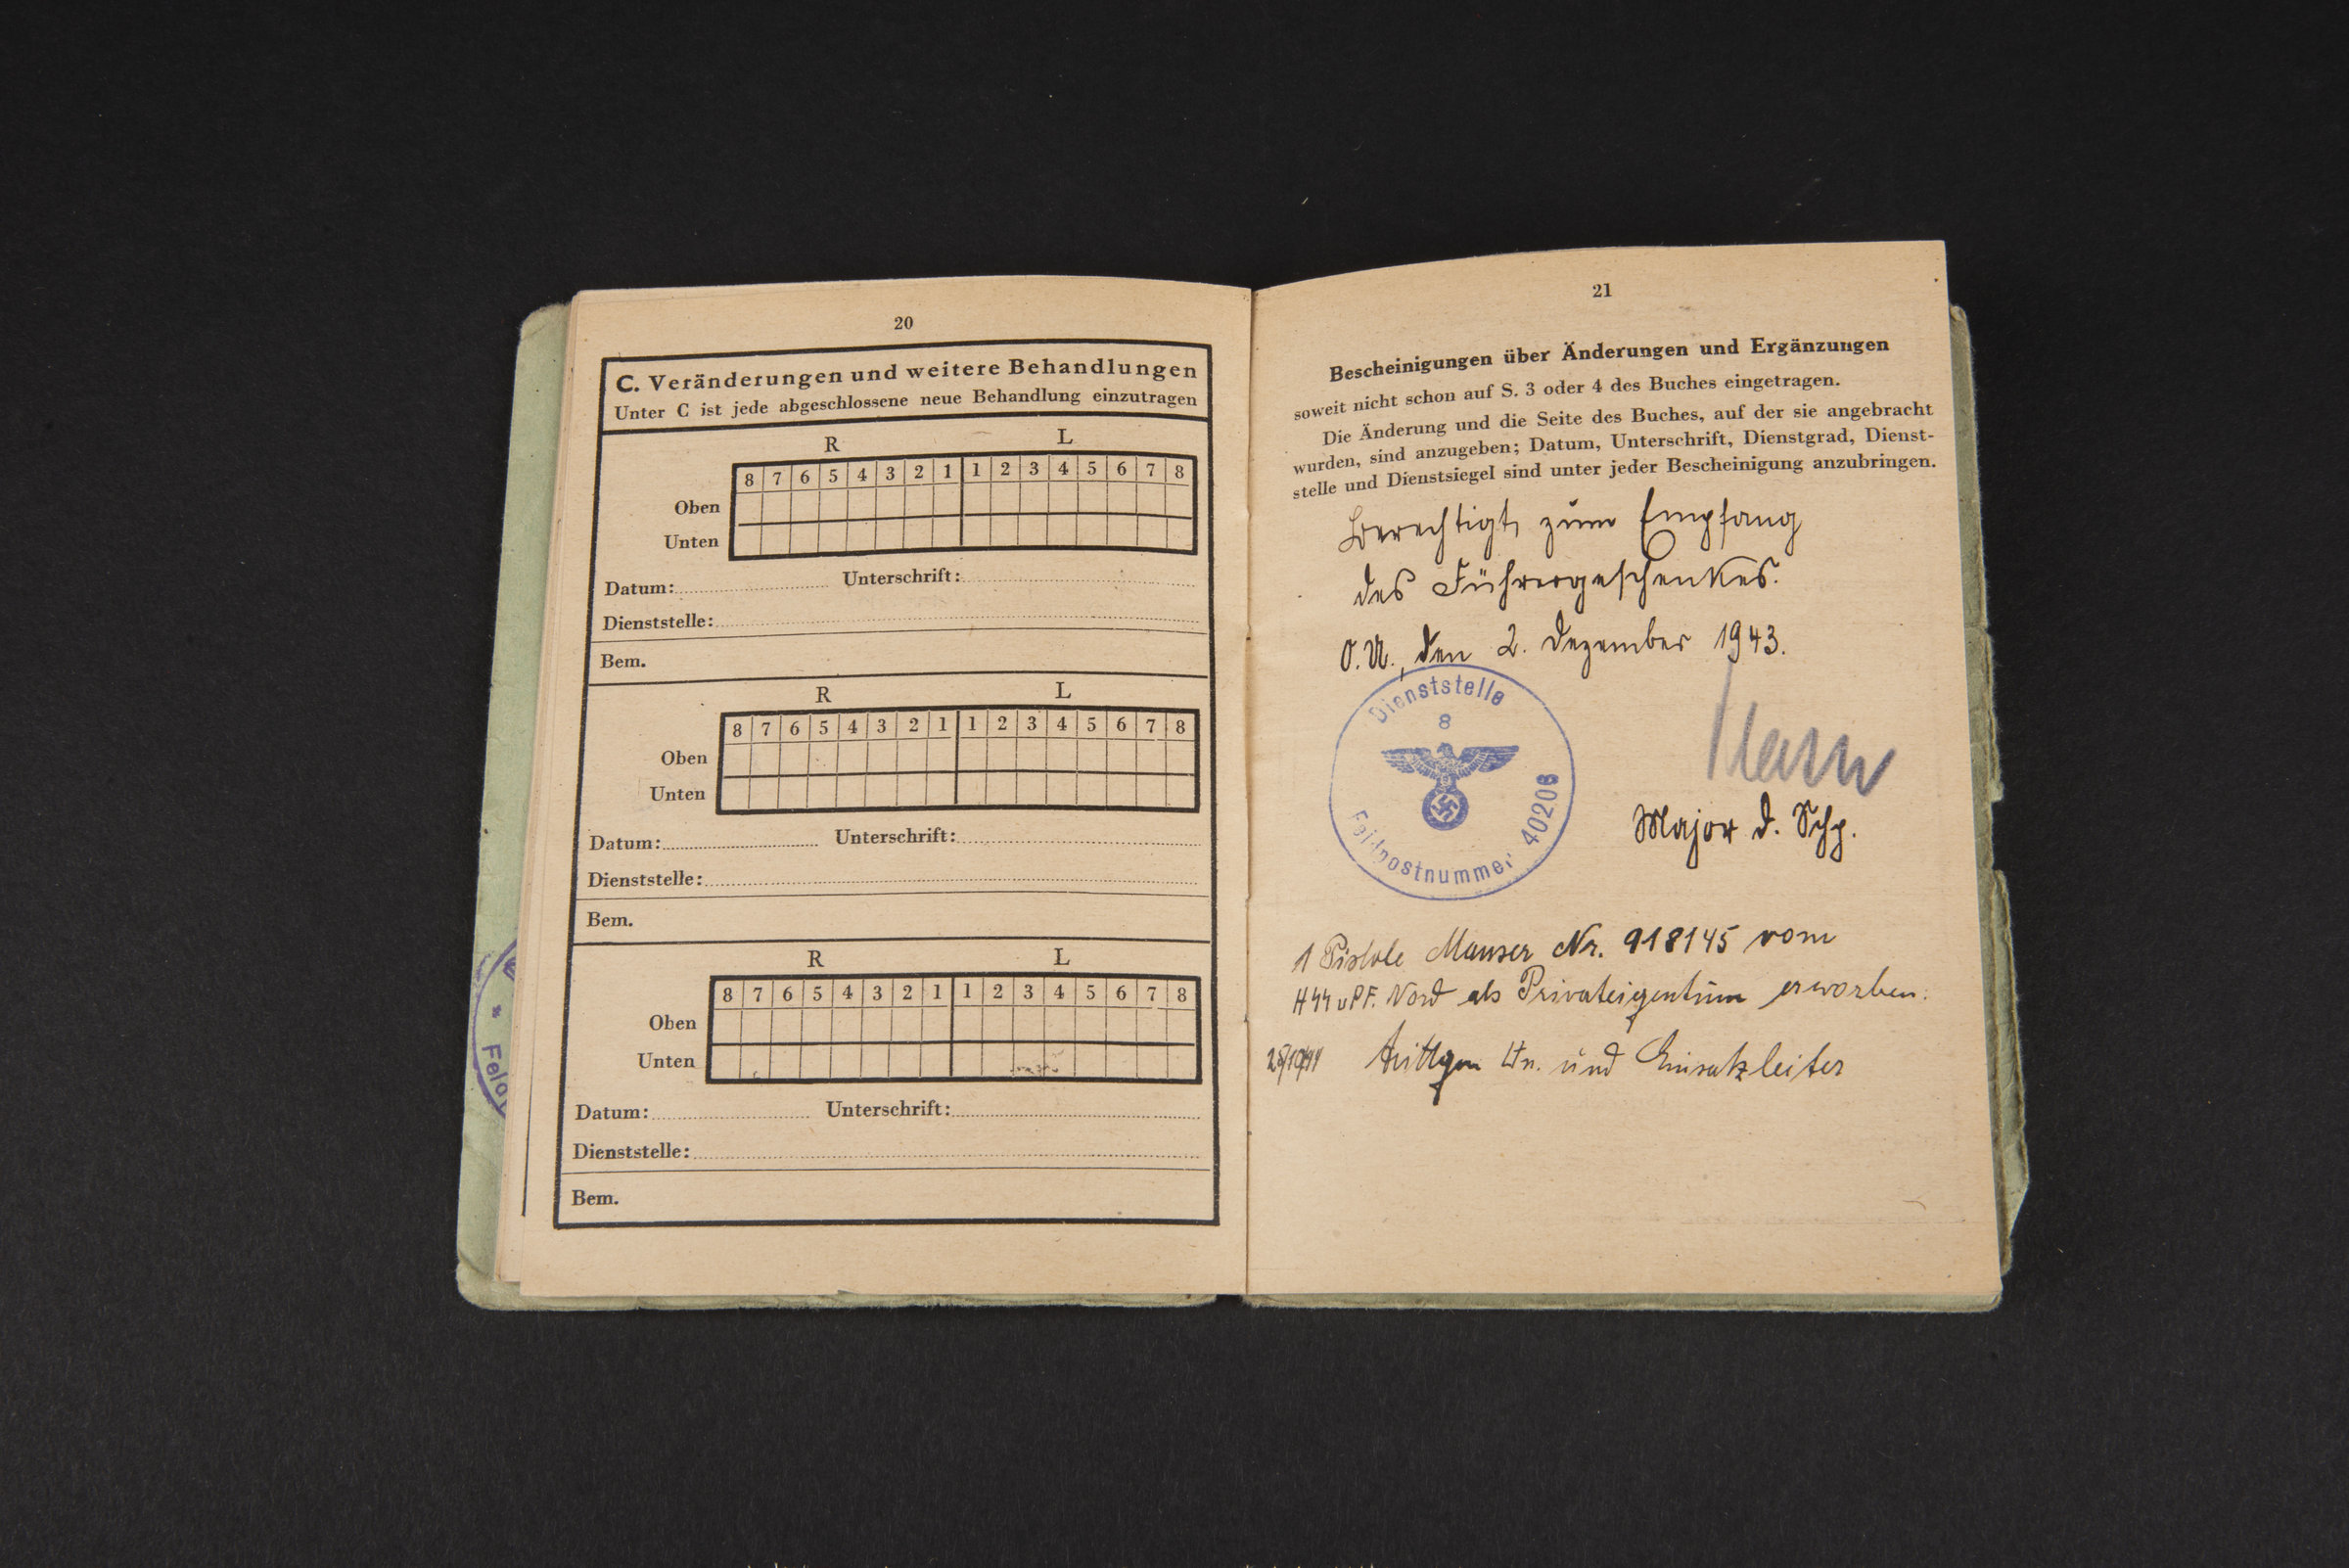 20
C. Veränderungen und weitere Behandlungen
Unter C ist jede abgeschlossene neue Behandlung einzutragen
R L
8 7 6 5 4 3 2 1 1 2 3 4 5 6 7 8
Oben
Unten
Datum: Unterschrift:
Dienststelle:
Bem.
R L
8 7 6 5 4 3 2 1 1 2 3 4 5 6 7 8
Oben
Unten
Datum: Unterschrift:
Dienststelle:
Bem.
R L
8 7 6 5 4 3 2 1 1 2 3 4 5 6 7 8
Oben
Unten
Datum: Unterschrift:
Dienststelle:
Bem.
21
Bescheinigungen über Änderungen und Ergänzungen
soweit nicht schon auf S. 3 oder 4 des Buches eingetragen.
Die Änderung und die Seite des Buches, auf der sie angebracht
wurden, sind anzugeben; Datum, Unterschrift, Dienstgrad, Dienst-
stelle und Dienstsiegel sind unter jeder Bescheinigung anzubringen.
Berechtigt zum Empfang
des Führergeschenkes.
O.U., den 2. Dezember 1943.
Dienststelle
8
Feldpostnummer 40206
Major d. Schp.
1 Pistole Mauser Nr. 918145 vom
HSSuPF. Nord als Privateigentum erworben.
Ltn. und Einsatzleiter